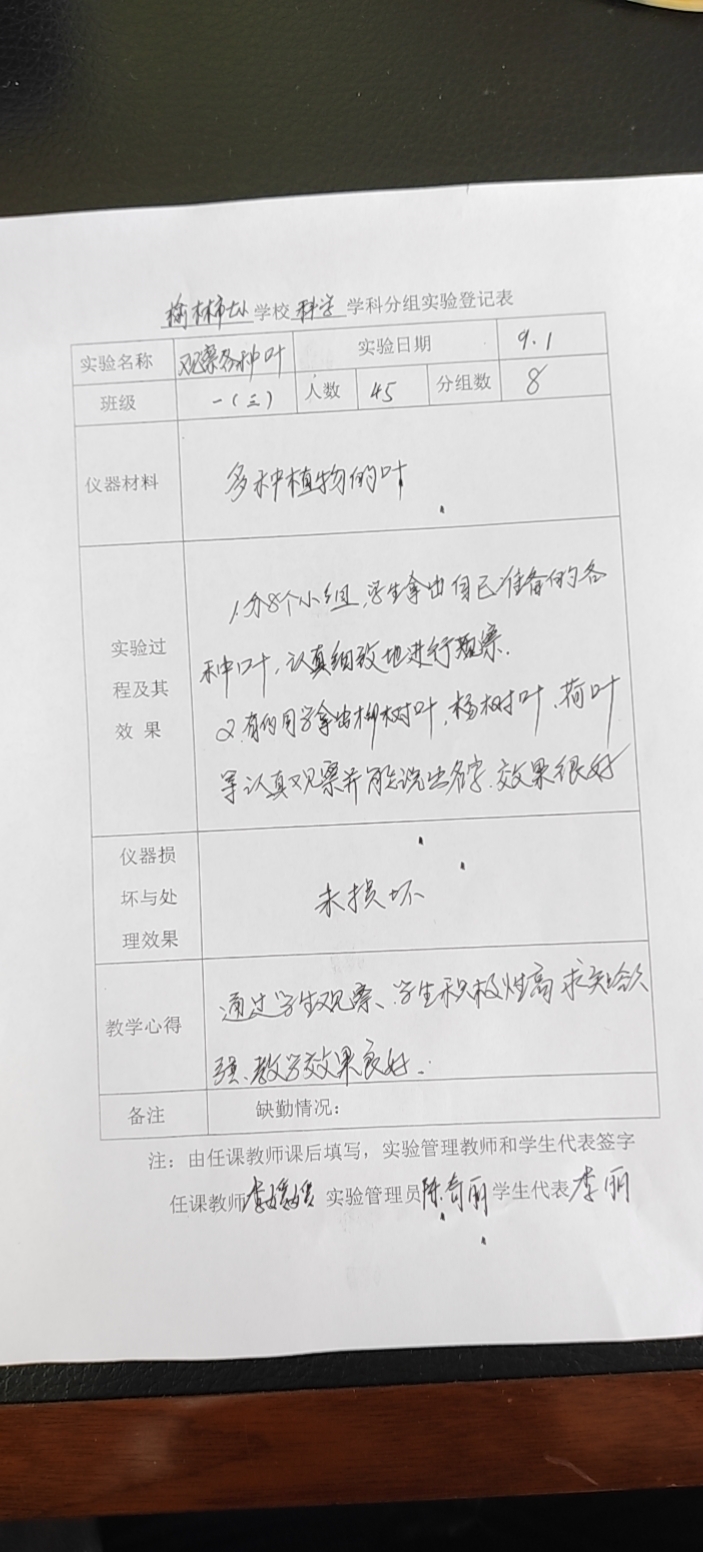 榆林市 学校 科学 学科分组实验登记表
实验名称 观察各种叶 实验日期 9.1
班级 一(三) 人数 45 分组数 8
仪器材料 多种植物的叶
实验过程及其效果
1.分8个小组,学生拿出自己准备的各
种叶,认真细致地进行观察.
2.有的同学拿出柳树叶,杨树叶、荷叶
等认真观察并能说出名字.效果很好
仪器损坏与处理效果 未损坏
教学心得
通过学生观察、学生积极性高 求知欲
强、教学效果良好.
备注 缺勤情况:
注:由任课教师课后填写,实验管理教师和学生代表签字
任课教师 李媛媛 实验管理员 陈奇丽 学生代表 李丽